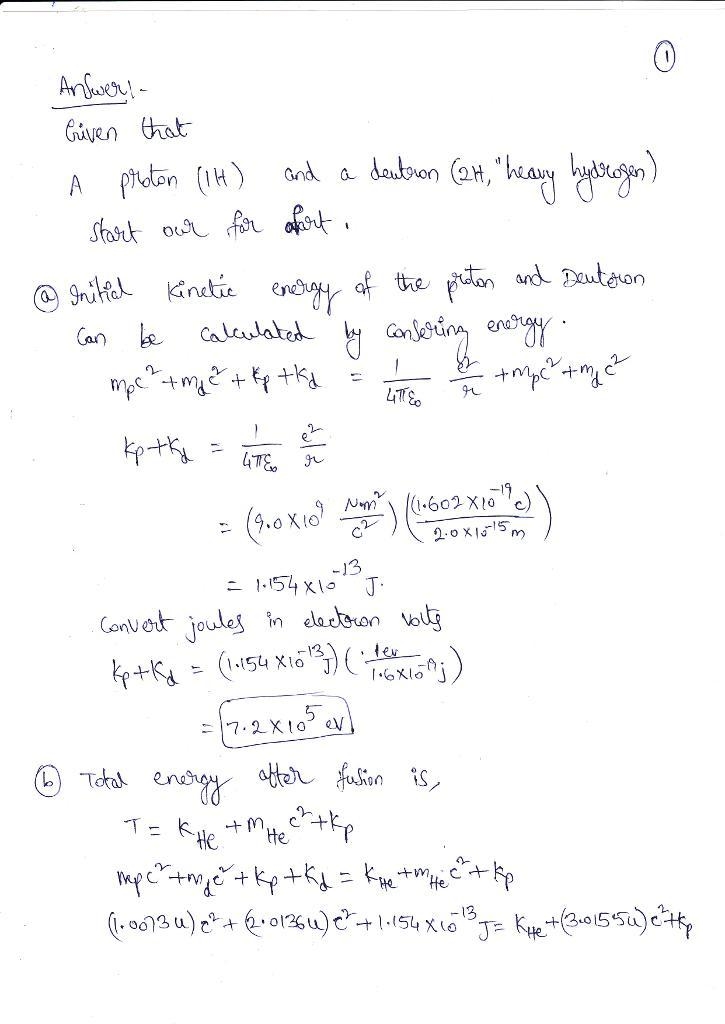 1
Answer:-
Given that
A proton (1H) and a deutron (2H, "heavy hydrogen)
start our far apart.
(a) Initial Kinetic energy of the proton and Deuteron
Can be calculated by consering energy.
mpc² + m_dc² + Kp + Kd = 1/4πε₀ e²/r + mpc² + m_dc²
Kp + Kd = 1/4πε₀ e²/r
= (9.0 X 10⁹ N·m²/c²) ((1.602 X 10⁻¹⁹ c)/2.0 x 10⁻¹⁵ m)
= 1.154 x 10⁻¹³ J.
Convert joules in electron volts
Kp + Kd = (1.154 X 10⁻¹³ J) (1ev/1.6 x 10⁻¹⁹ j)
= 7.2 X 10⁵ eV
(b) Total energy after fusion is,
T = K_He + m_He c² + Kp
mpc² + m_dc² + Kp + Kd = K_He + m_He c² + Kp
(1.0073 u) c² + (2.0136 u) c² + 1.154 x 10⁻¹³ J = K_He + (3.0155 u) c² + Kp